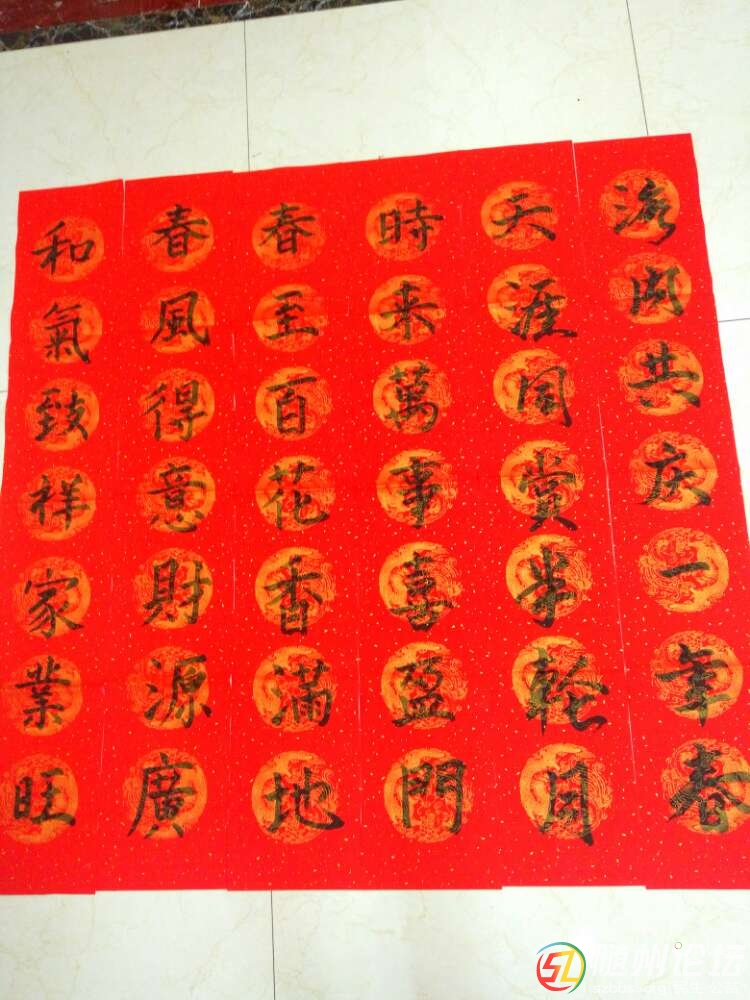 海内共庆一年春
天涯同赏半輪月
時来萬事喜盈門
春至百花香滿地
春風得意財源廣
和氣致祥家業旺
随州论坛